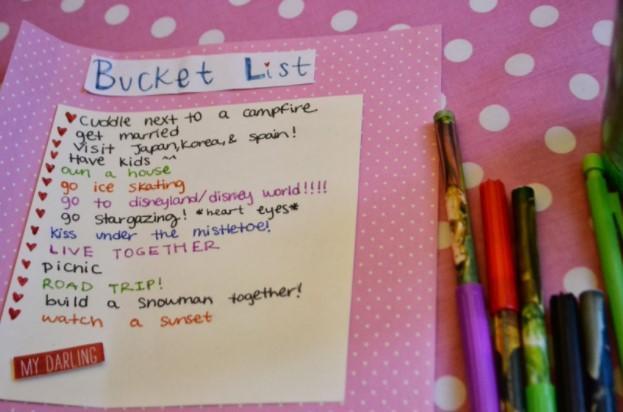 Bucket List
Cuddle next to a campfire
get married
Visit Japan, Korea, & Spain!
Have kids ^^
own a house
go ice skating
go to disneyland/disney world!!!!
go stargazing! *heart eyes*
kiss under the mistletoe!
LIVE TOGETHER
picnic
ROAD TRIP!
build a snowman together!
watch a sunset
MY DARLING